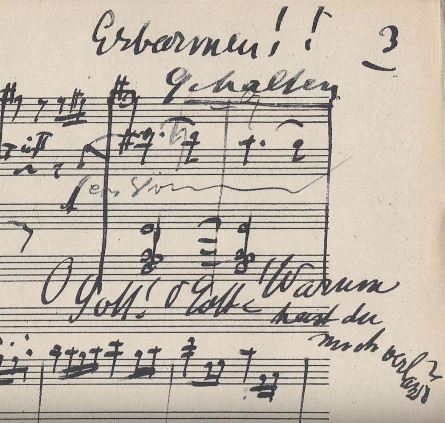 Erbarmen!! 3
gehalten
O Gott! O Gott! Warum
hast du
mich verlassen?